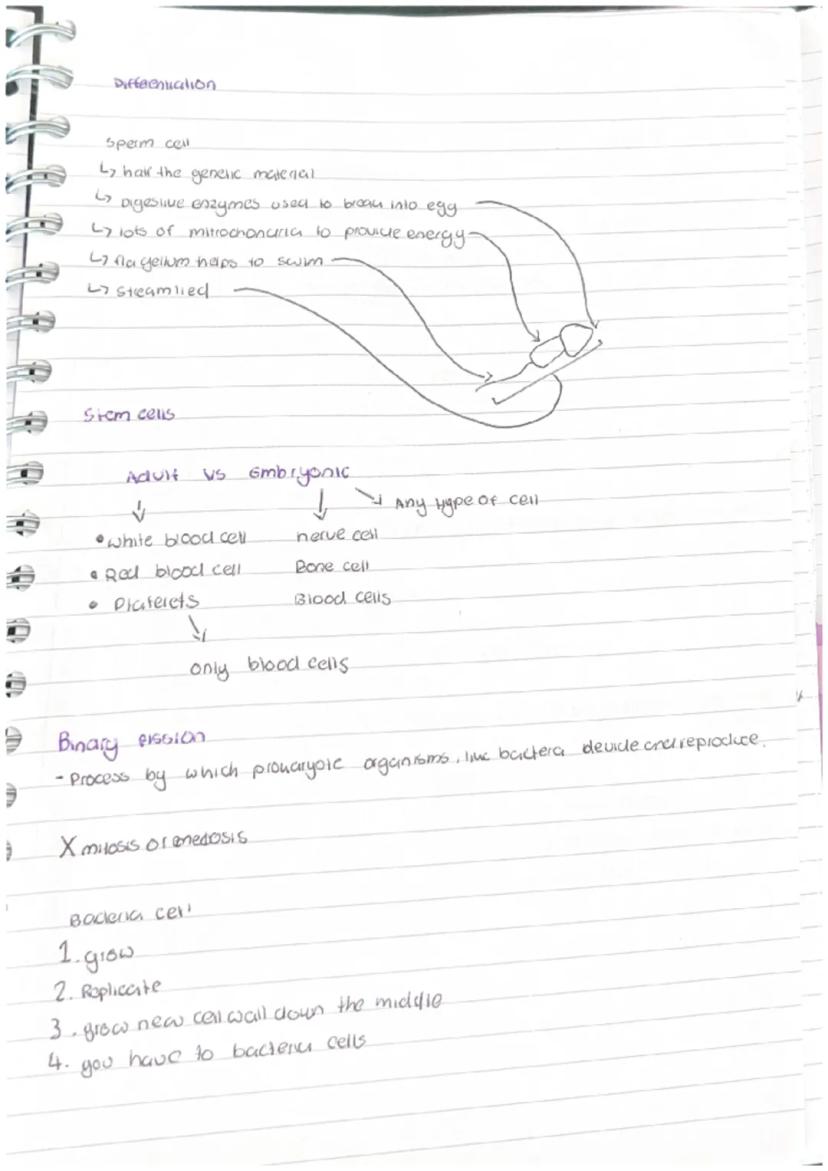 Differentiation
Sperm cell
↳ half the genetic material
↳ Digestive enzymes used to break into egg
↳ lots of mitrochondria to provide energy
↳ flagellum helps to swim
↳ streamlied
Stem cells
Adult vs Embryonic
Any type of cell
• White blood cell nerve cell
• Red blood cell Bone cell
• Platelets Blood cells
only blood cells
Binary fission
- Process by which prokaryotic organisms, like bacteria devide and reproduce.
X mitosis or
Bacteria cell
1. grow
2. Replicate
3. grow new cell wall down the middle
4. you have to bacteria cells